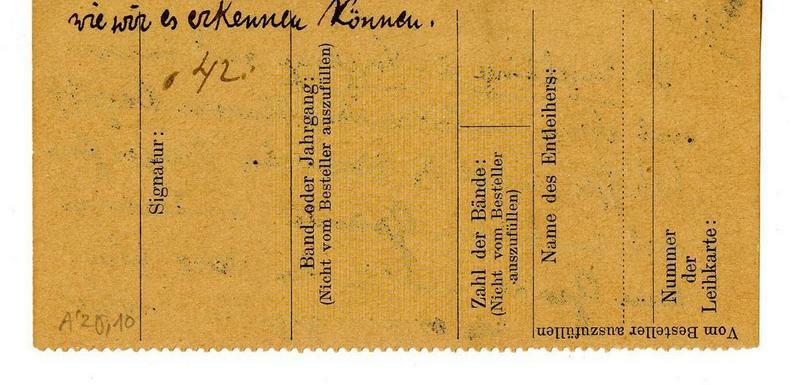 wie wir es erkennen können.
42.
Signatur:
Band oder Jahrgang:
(Nicht vom Besteller auszufüllen)
Zahl der Bände:
(Nicht vom Besteller
auszufüllen)
Name des Entleihers:
Nummer
der
Leihkarte:
Vom Besteller auszufüllen
A'20,10